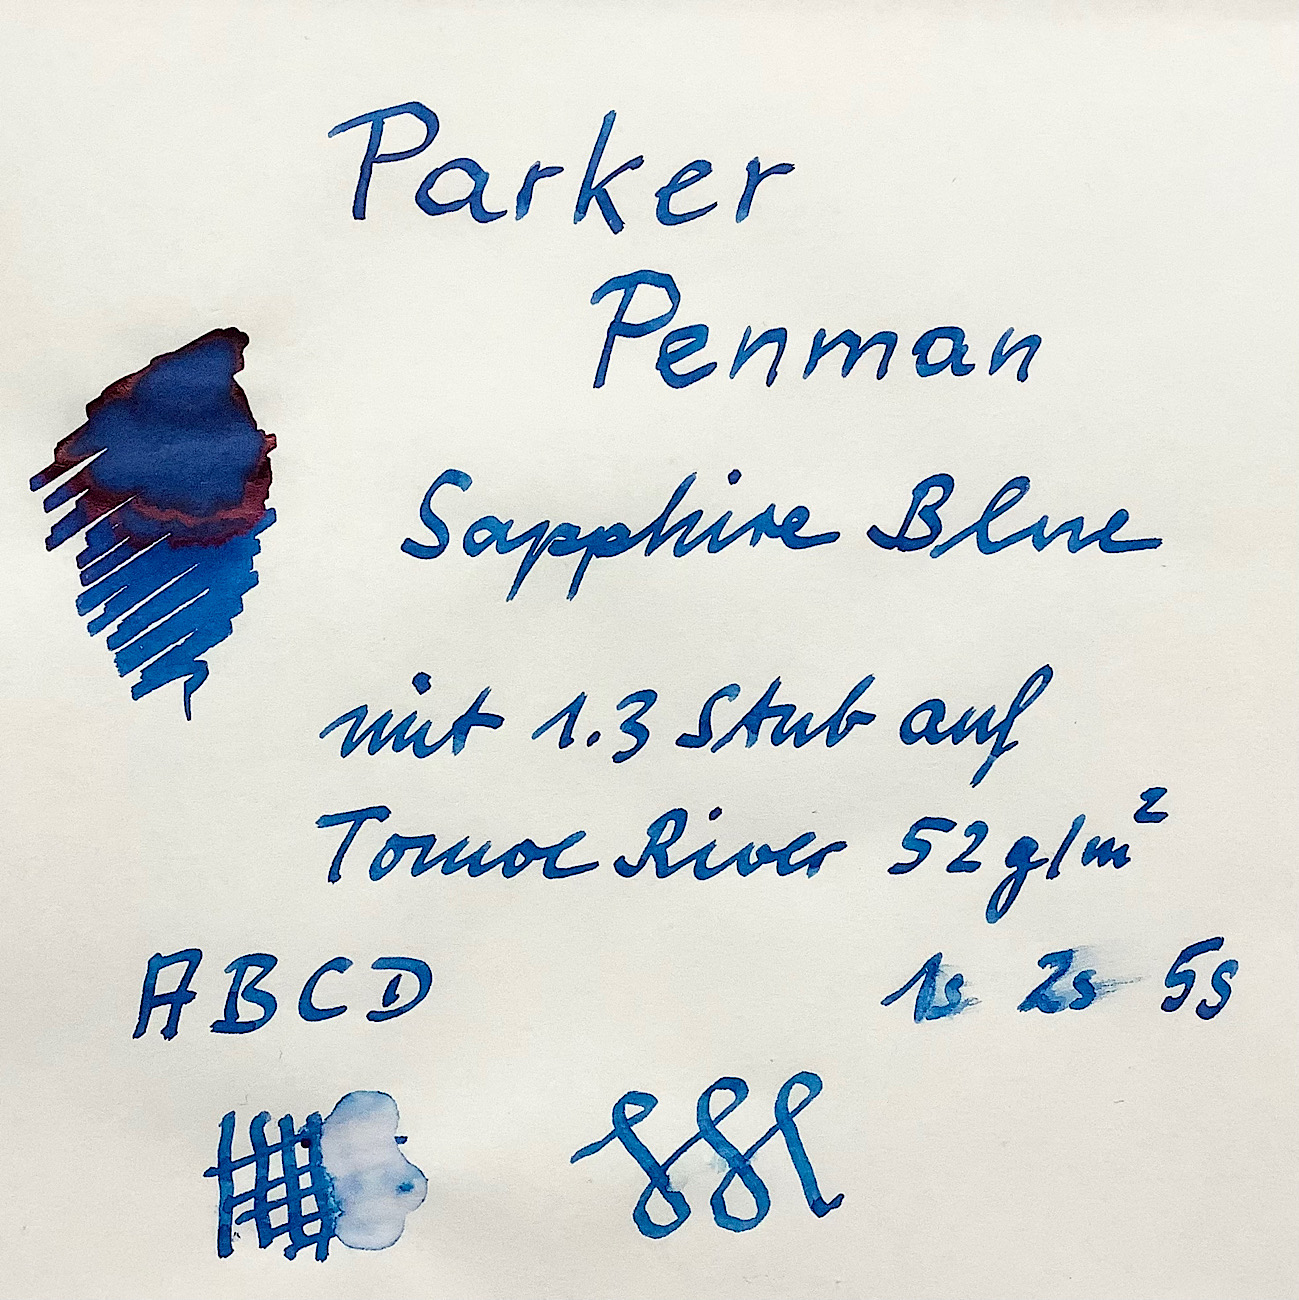 Parker
Penman
Sapphire Blue
mit 1.3 Stub auf
Tomoe River 52 g/m²
ABCD 1s 2s 5s